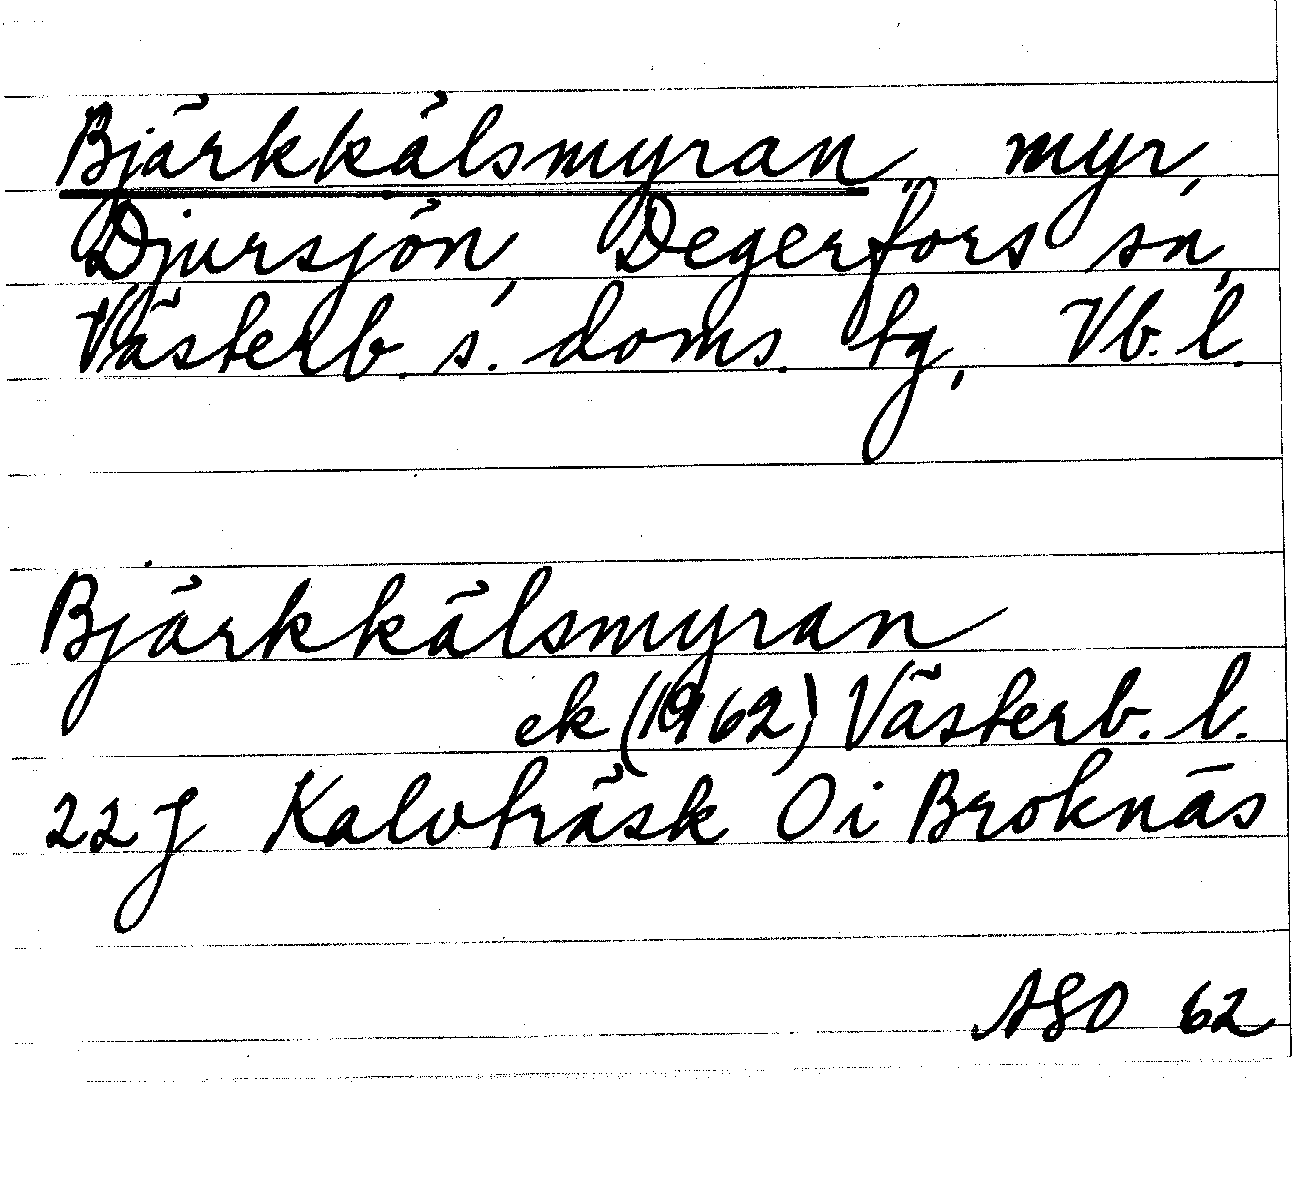 Bjärkkälsmyran, myr,
Djursjön, Degerfors sn,
Västerb. s. doms. tg, Vb. l.
Bjärkkälsmyran
ek (1962) Västerb. l.
22 J Kalvträsk Oi Broknäs
ASO 62